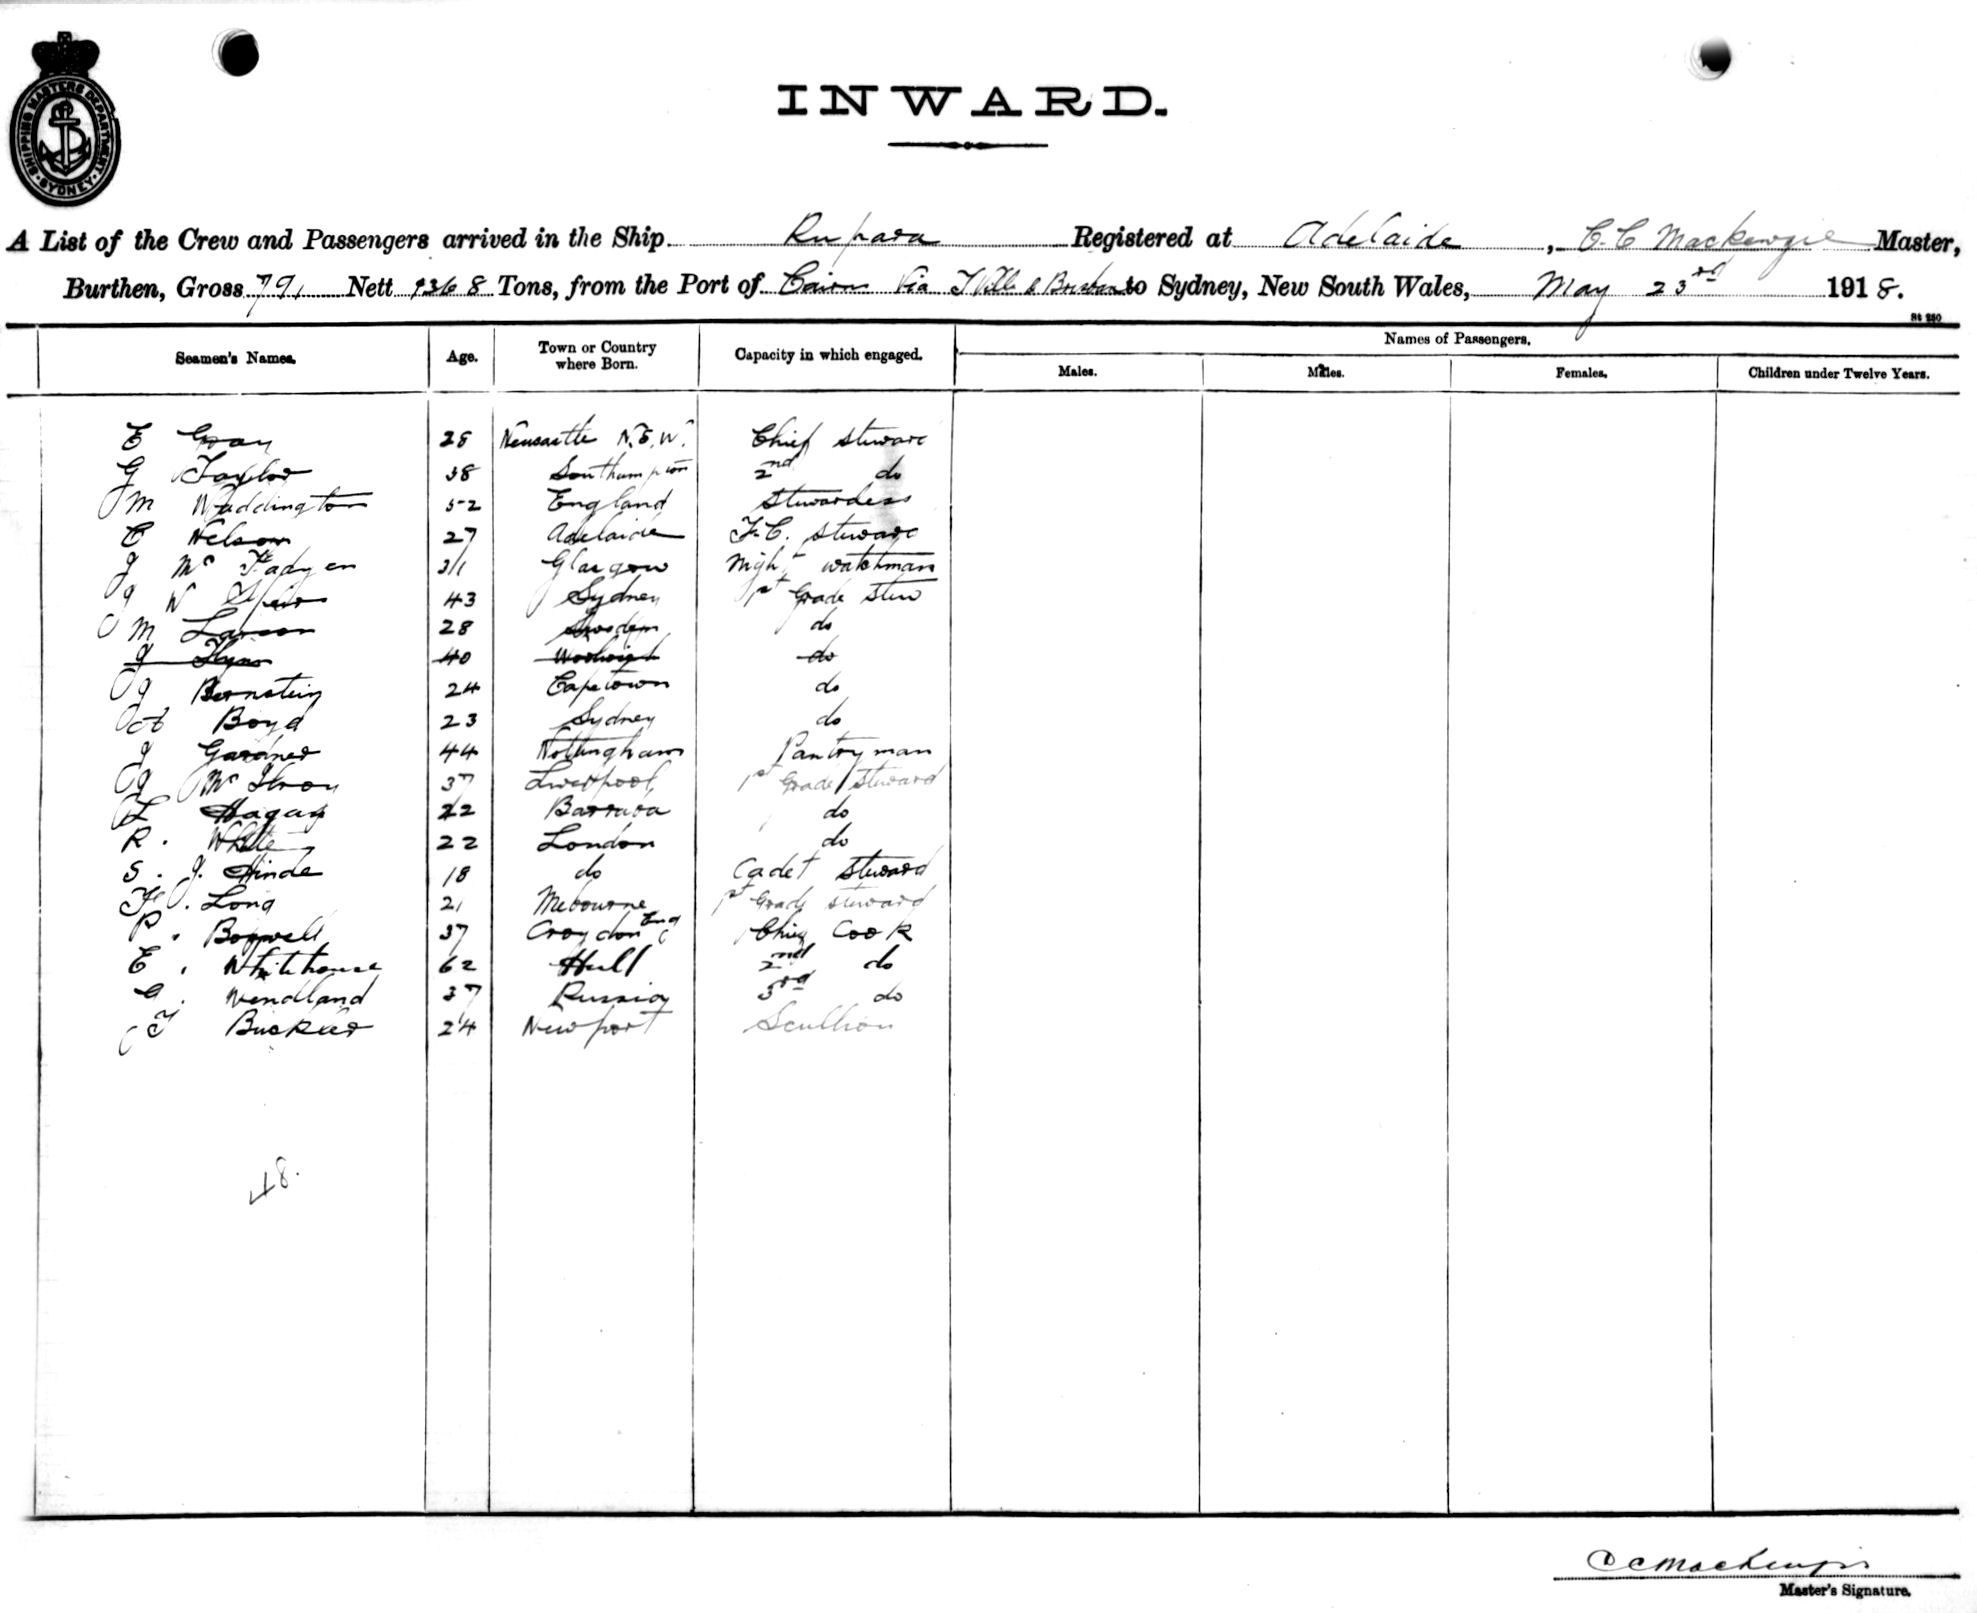 SHIPPING MASTERS DEPARTMENT
SYDNEY
INWARD.
A List of the Crew and Passengers arrived in the Ship Rupara Registered at Adelaide, C. C Mackenzie Master,
Burthen, Gross 791 Nett 1368 Tons, from the Port of Cairns Via T'Ville & Brisbane to Sydney, New South Wales, May 23rd 1918.
St 280
Seamen's Names. Age. Town or Country where Born. Capacity in which engaged. Names of Passengers.
Males. Males. Females. Children under Twelve Years.
E Gray 28 Newcastle N.S.W. Chief steward
G Taylor 38 Southampton 2nd do
M Waddington 52 England Stewardess
C Nelson 27 Adelaide F.C. steward
J Mc Fadyen 31 Glasgow Night watchman
J W 43 Sydney 1st Grade Stew
M Larson 28 Sweden do
J Flynn 40 Woolwich do
J Bernstein 24 Capetown do
A Boyd 23 Sydney do
J Gardner 44 Nottingham Pantryman
J Mc Ilroy 37 Liverpool 1st Grade Steward
L Hagan 22 Barraba do
R. White 22 London do
S. J. Hinde 18 do Cadet Steward
F. Long 21 Mebourne 1st Grade steward
P. Boswell 37 Croydon Eng Chief Cook
E. Whitehouse 62 Hull 2nd do
A. Wendland 37 Russia 3rd do
T Buckler 24 Newport Scullion
48.
C C Mackenzie
Master's Signature.